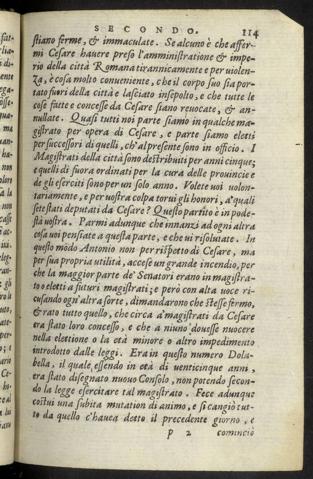 SECONDO. 114
stiano ferme, & immaculate. Se alcuno è che affer-
mi Cesare hauere preso l'amministratione & impe-
rio della città Romana tirannicamente e per uiolen-
za, è cosa molto conueniente, che il corpo suo sia por-
tato fuori della città e lasciato insepolto, e che tutte le
cose fatte e concesse da Cesare siano reuocate, & an-
nullate. Quasi tutti noi parte siamo in qualche ma-
gistrato per opera di Cesare, e parte siamo eletti
per successori di quelli, ch'al presente sono in officio. I
Magistrati della città sono destribuiti per anni cinque;
e quelli di fuora ordinati per la cura delle prouincie e
de gli eserciti sono per un solo anno. Volete uoi uolon-
tariamente, e per uostra colpa torui gli honori, a' quali
sete stati deputati da Cesare? Questo partito è in pode-
stà uostra. Parmi adunque che innanzi ad ogni altra
cosa uoi pensiate a questa parte, e che ui risolutate. In
questo modo Antonio non per rispetto di Cesare, ma
per sua propria utilità, accese un grande incendio, per
che la maggior parte de' Senatori erano in magistra-
to o eletti a futuri magistrati; e però con alta uoce ri-
cusando ogn'altra sorte, dimandarono che stesse fermo,
& rato tutto quello, che circa a' magistrati da Cesare
era stato loro concesso, e che a niuno douesse nuocere
nella elettione o la età minore o altro impedimento
introdotto dalle leggi. Era in questo numero Dola-
bella, il quale, essendo in età di uenticinque anni,
era stato disegnato nuouo Consolo, non potendo secon-
do la legge esercitare tal magistrato. Fece adunque
costui una subita mutation di animo, e si cangiò tut-
to da quello c'hauea detto il precedente giorno, e
P 2 cominciò